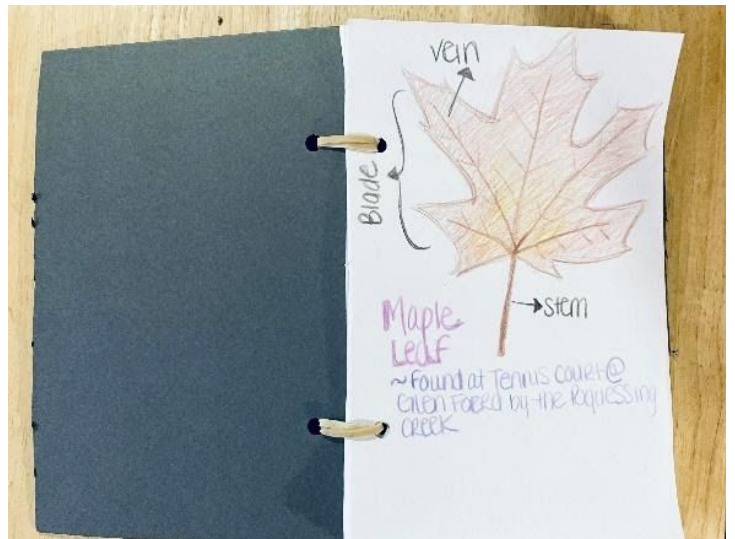 vein
Blade
stem
Maple
Leaf
~Found at Tennis court @
Glen Foerd by the Poquessing
creek